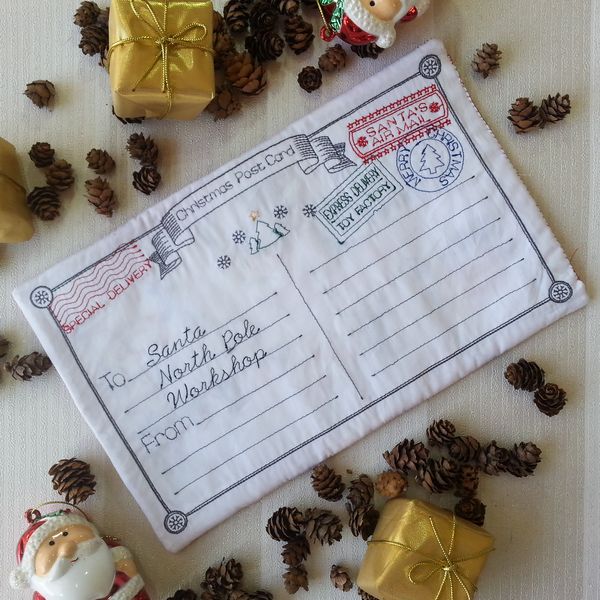 Christmas Post Card
SANTA'S
AIR MAIL
MERRY CHRISTMAS
EXPRESS DELIVERY
TOY FACTORY
SPECIAL DELIVERY
To Santa
North Pole
Workshop
From